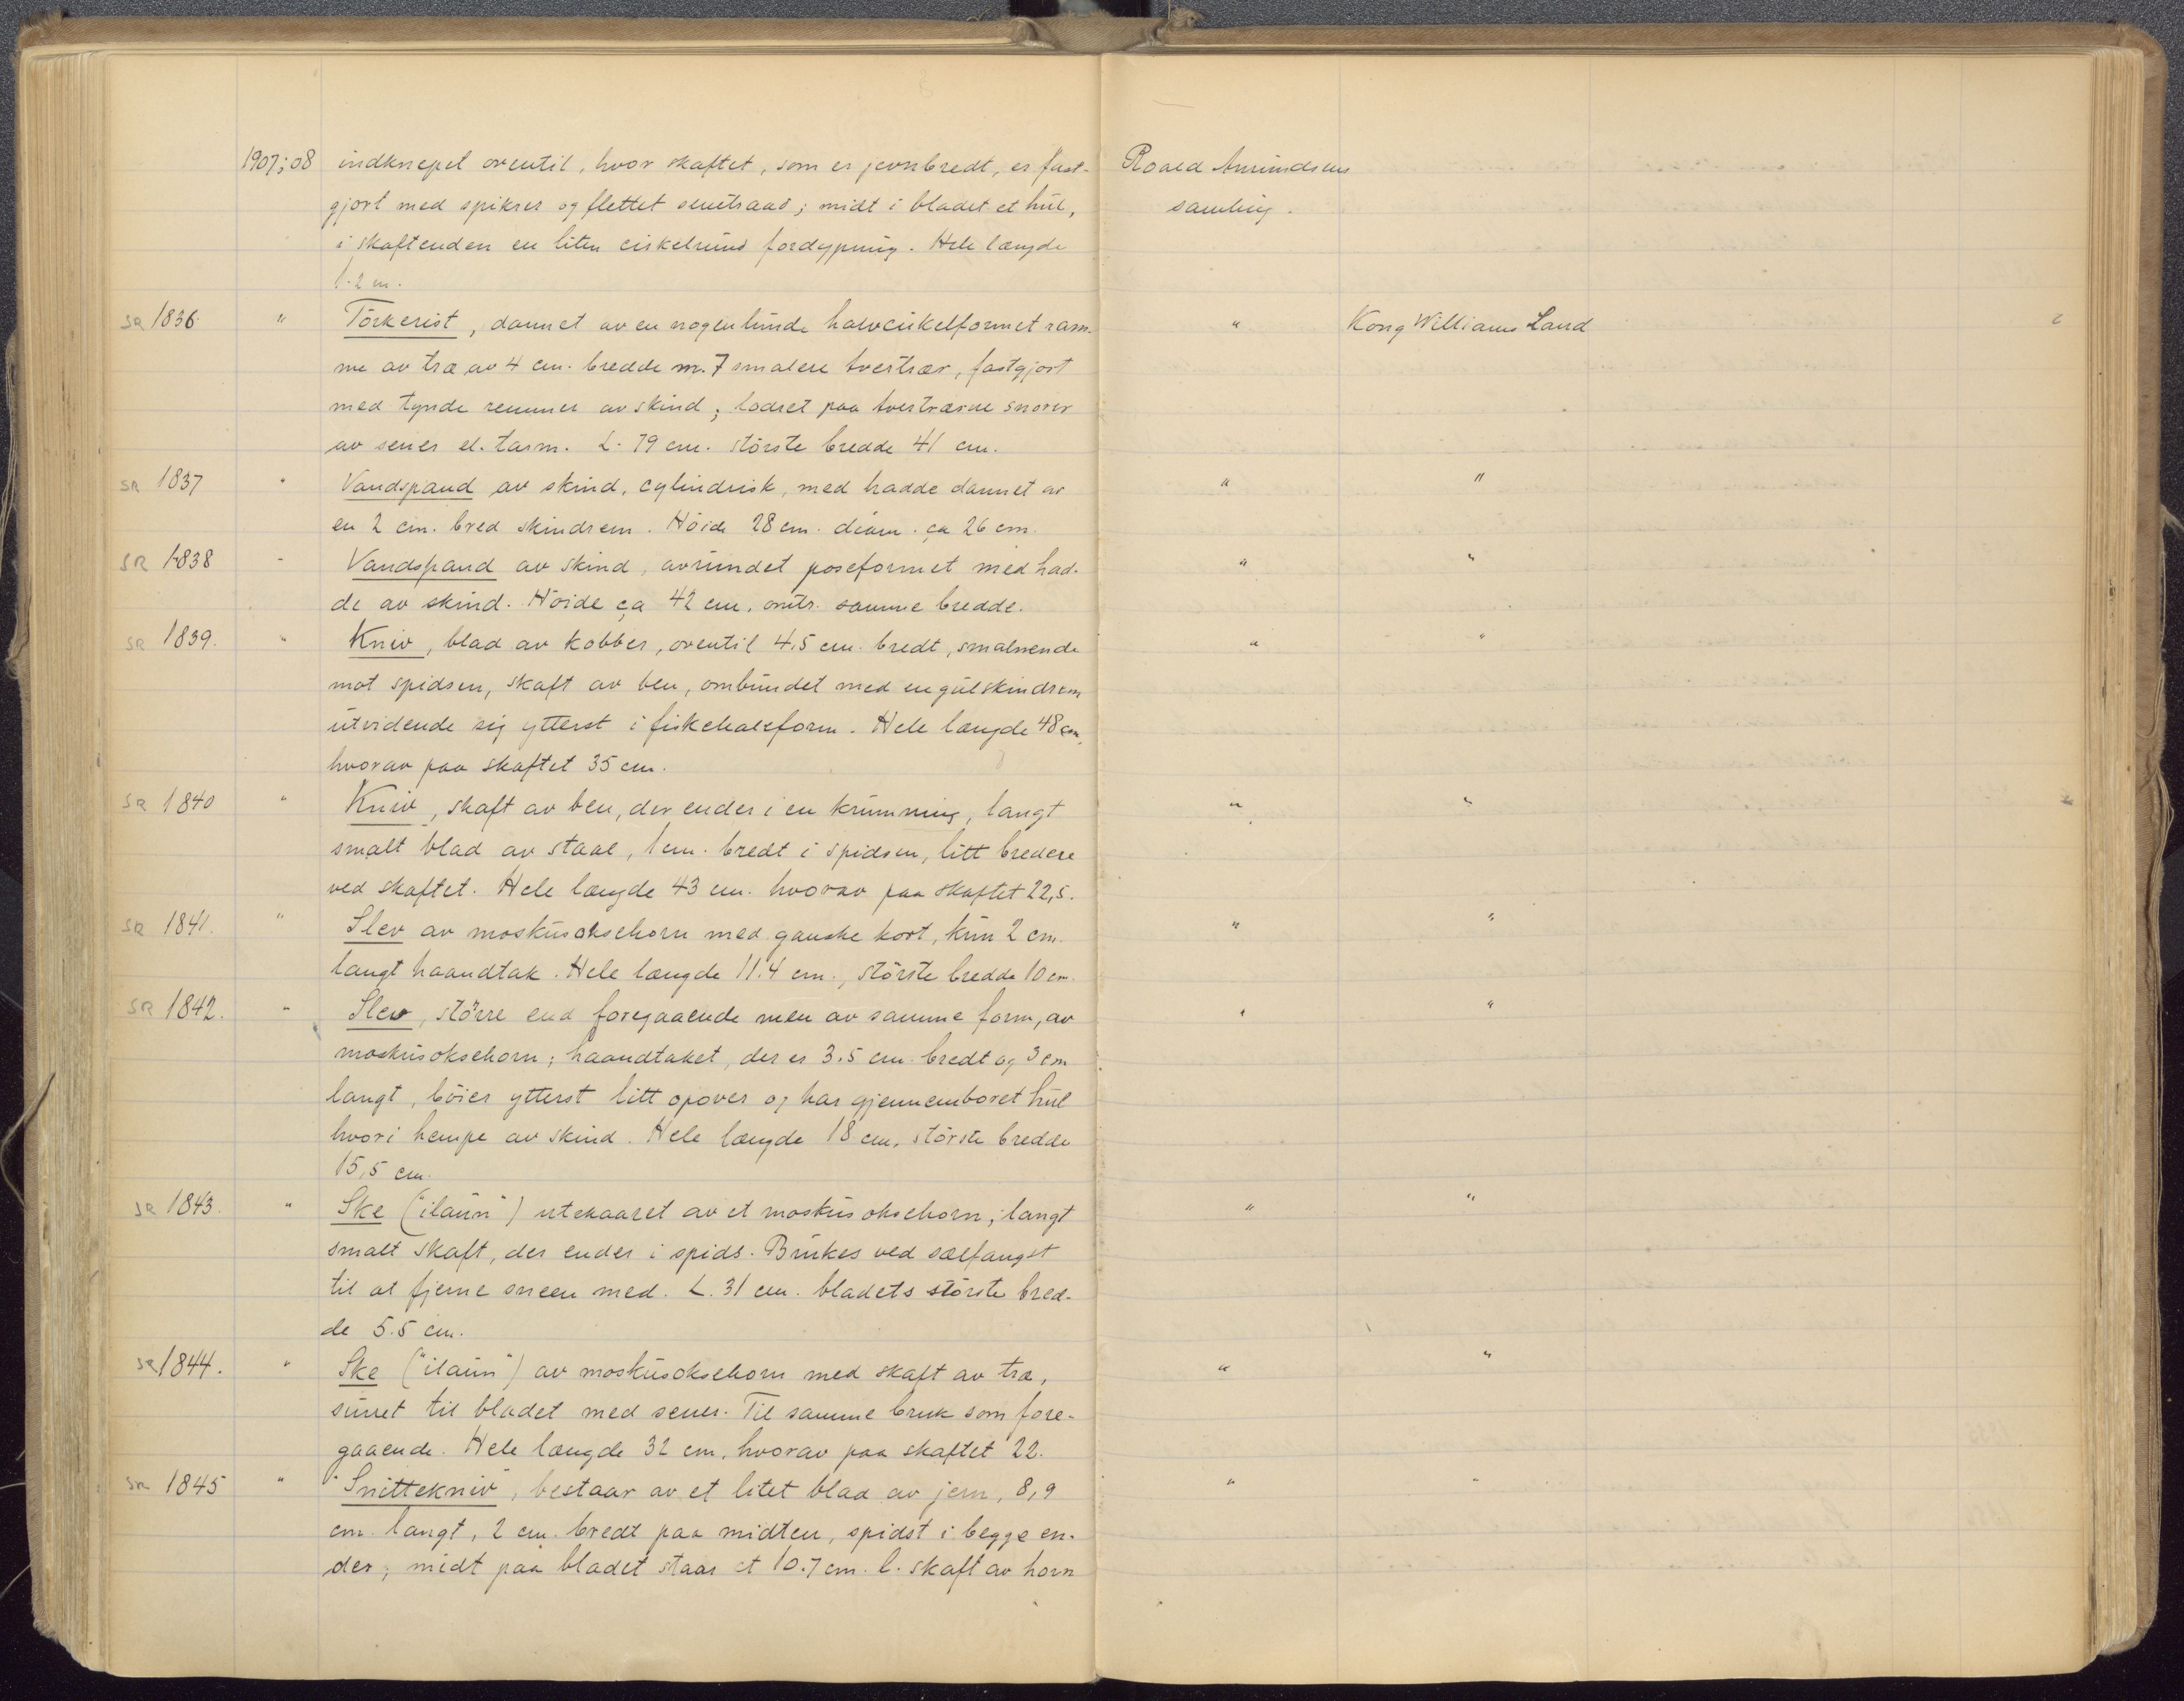 1907; 08 indknepet oventil, hvor skaftet, som er jevnbredt, er fast- Roald Amundsens
gjort med spikrer og flettet senetraad; midt i bladet et hul, samling.
i skaftenden en liten cirkelrund fordypning. Hele længde
1.2 m.
SR 1836. " Törkerist, dannet av en nogenlunde halvcirkelformet ram- " Kong Williams Land
me av træ av 4 cm. bredde m. 7 smalere tvertrær, fastgjort
med tynde remmer av skind; lodret paa tvertrærne snorer
av sener el. tarm. L. 79 cm. störste bredde 41 cm.
SR 1837 " Vandspand av skind, cylindrisk, med hadde dannet av " "
en 2 cm. bred skindrem. Höide 28 cm. diam. ca 26 cm.
SR 1838 " Vandspand av skind, avrundet poseformet med had- " "
de av skind. Höide ca 42 cm, omtr. samme bredde.
SR 1839. " Kniv, blad av kobber, oventil 4,5 cm. bredt, smalnende " "
mot spidsen, skaft av ben, ombundet med en gul skindrem
utvidende sig ytterst i fiskehaleform. Hele længde 48 cm,
hvorav paa skaftet 35 cm.
SR 1840 " Kniv, skaft av ben, der ender i en krumning, langt " "
smalt blad av staal, 1 cm. bredt i spidsen, litt bredere
ved skaftet. Hele længde 43 cm. hvorav paa skaftet 22,5.
SR 1841. " Slev av moskusoksehorn med ganske kort, kun 2 cm. " "
langt haandtak. Hele længde 11.4 cm., störste bredde 10 cm.
SR 1842. " Slev, större end foregaaende men av samme form, av " "
moskusoksehorn; haandtaket, der er 3.5 cm. bredt og 3 cm
langt, böier ytterst litt opover og har gjennemboret hul
hvori hempe av skind. Hele længde 18 cm, störste bredde
15,5 cm.
SR 1843. " Ske ("ilaun") utskaaret av et moskusoksehorn; langt " "
smalt skaft, der ender i spids. Brukes ved sælfangst
til at fjerne sneen med. L. 31 cm. bladets störste bred-
de 5.5 cm.
SR 1844. " Ske ("ilaun") av moskusoksehorn med skaft av træ, " "
surret til bladet med sener. Til samme bruk som fore-
gaaende. Hele længde 32 cm, hvorav paa skaftet 22.
SR 1845 " "Snittekniv", bestaar av et litet blad av jern, 8,9 " "
cm. langt, 2 cm. bredt paa midten, spidst i begge en-
der; midt paa bladet staar et 10.7 cm. l. skaft av horn